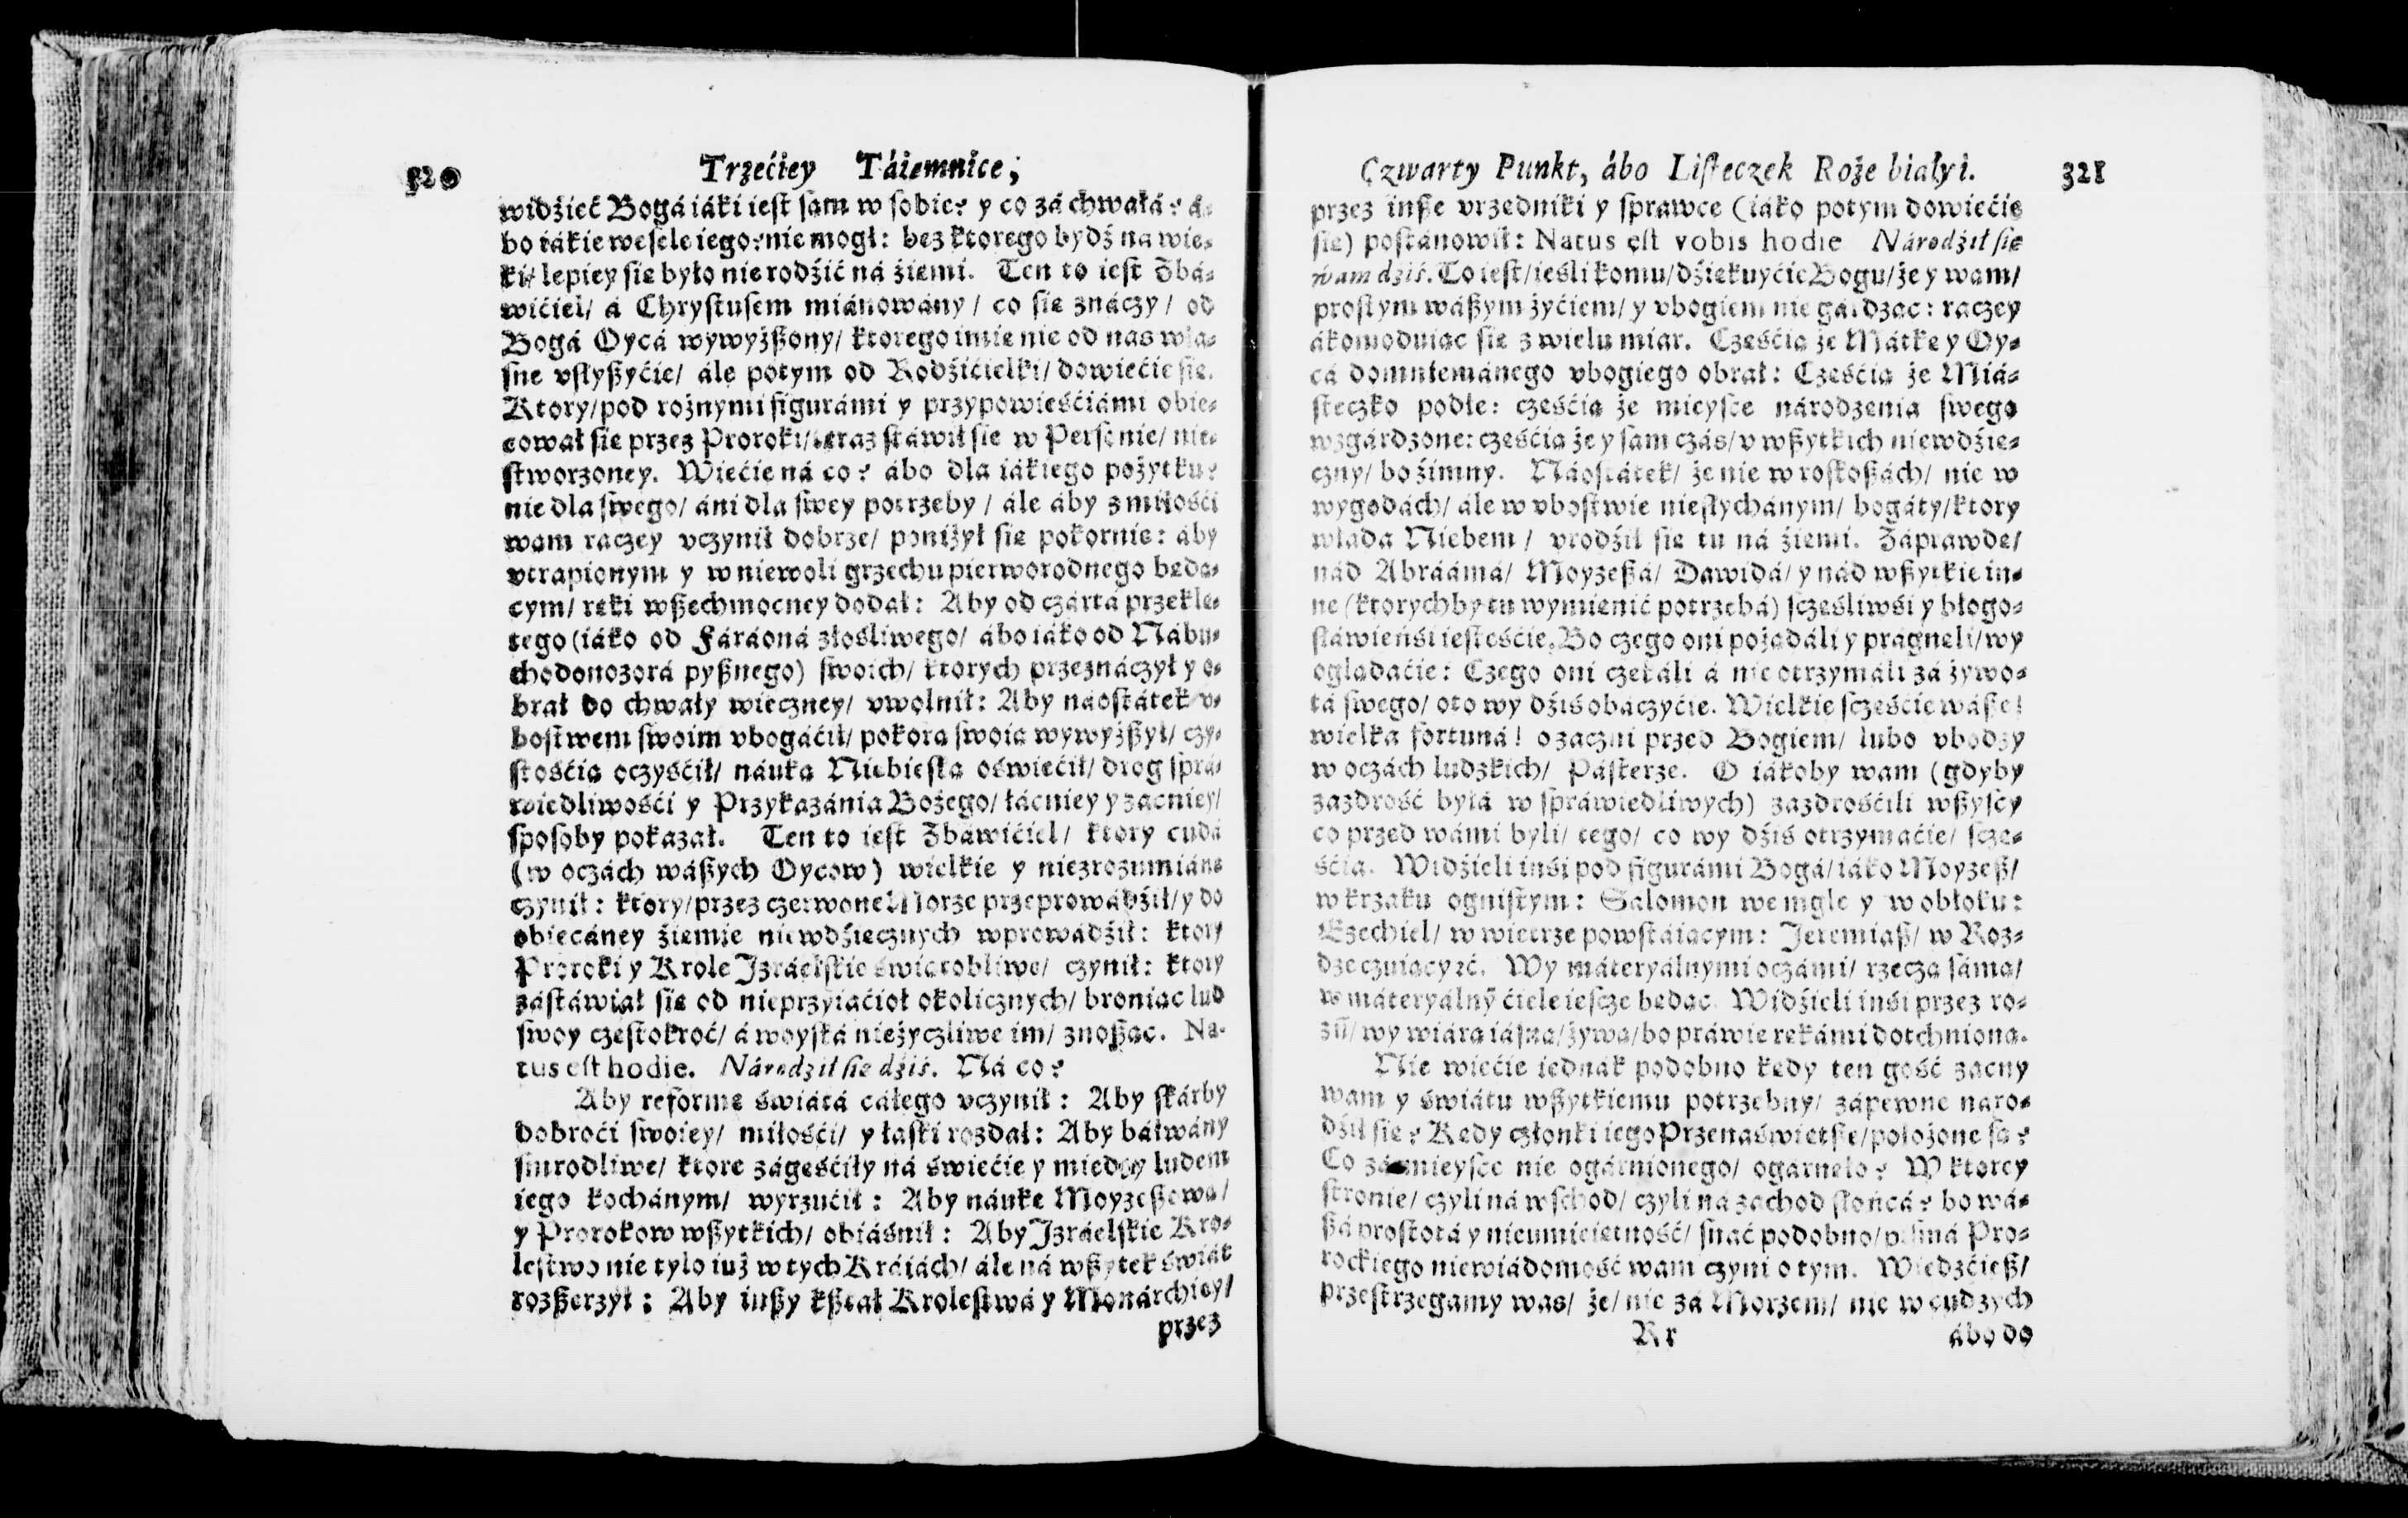 320 Trzećiey Táiemnice;
widźieć Bogá iáki iest sam w sobie? y co zá chwałá? á-
bo iákie wesele iego? nie mogł: bez ktorego bydź na wie-
ki/ lepiey sie było nie rodźić ná źiemi. Ten to iest Zbá-
wićiel/ á Chrystusem miánowány/ co sie znáczy/ od
Bogá Oycá wywyżßony/ ktorego imie nie od nas wła-
sne vsłyßyćie/ ále potym od Rodźićielki/ dowiećie sie.
Ktory/ pod rożnymi figurámi y przypowieśćiámi obie-
cował sie przez Proroki/ teraz stáwił sie w Personie/ nie-
stworzoney. Wiećie ná co? ábo dla iákiego pożytku?
nie dla swego/ áni dla swey potrzeby/ ále áby z miłośći
wam raczey vczynił dobrze/ poniżył sie pokornie: áby
vtrapionym y w niewoli grzechu pierworodnego beda-
cym/ reki wßechmocney dodał: Aby od czártá przekle-
tego (iáko od Fáráoná złosliwego/ ábo iáko od Nábu-
chodonozorá pyßnego) swoich/ ktorych przeznáczył y o-
brał do chwały wieczney/ vwolnił: Aby náostátek v-
bostwem swoim vbogáćił/ pokora swoia wywyżßył/ czy-
stośćia oczyśćił/ náuka Niebieska oświećił/ drog sprá-
wiedliwośći y Przykazánia Bożego/ łácniey y zacniey/
sposoby pokazał. Ten to iest Zbáwićiel/ ktory cudá
(w oczách wáßych Oycow) wielkie y niezrozumiáne
czynił: ktory/ przez czerwone Morze przeprowádźił/ y do
obiecáney źiemie niewdźiecznych wprowádźił: ktory
Proroki y Krole Izráelskie świątobliwe/ czynił: ktory
zástáwiał sie od nieprzyiaćioł okolicznych/ broniac lud
swoy czestokroć/ á woyská nieżyczliwe im/ znoßac. Na-
tus est hodie. Národźił sie dźiś. Ná co?
Aby reforme świátá całego vczynił: Aby skárby
dobroći swoiey/ miłośći/ y łaski rozdał: Aby báłwány
smrodliwe/ ktore zágeśćiły ná świećie y miedzy ludem
iego kochánym/ wyrzućił: Aby náuke Moyzeßowa/
y Prorokow wßytkich/ obiáśnił: Aby Izráelskie Kro-
lestwo nie tylo iuż w tych Kráiách/ ále ná wßytek świát
rozßerzył: Aby inßy kßtał Krolestwá y Monárchiey/
przez
Czwarty Punkt, ábo Listeczek Roże białyi. 321
przez inße vrzedniki y sprawce (iáko potym dowiećie
sie) postánowił: Natus est vobis hodie Národźił sie
wam dźiś. To iest/ iesli komu/ dźiekuyćie Bogu/ że y wam/
prostym wáßym żyćiem/ y vbogiem nie gárdzac: raczey
ákomoduiac sie z wielu miar. Cześćia że Mátke y Oy-
cá domniemánego vbogiego obrał: Cześćia że Miá-
steczko podłe: cześćia że mieysce národzenia swego
wzgárdzone: cześćia że y sam czás/ v wßytkich niewdźie-
czny/ bo źimny. Náostátek/ że nie w roskoßách/ nie w
wygodách/ ále w vbostwie niesłychánym/ bogáty/ ktory
włada Niebem/ vrodźił sie tu ná źiemi. Záprawde/
nád Abráámá/ Moyzeßá/ Dawidá/ y nád wßytkie in-
ne (ktorychby tu wymienić potrzebá) sczesliwśi y błogo-
sławieńśi iestesćie. Bo czego oni pożadáli y prágneli/ wy
ogladaćie: Czego oni czekáli á nie otrzymáli zá żywo-
tá swego/ oto wy dźiś obaczyćie. Wielkie sczesćie wáße!
wielka fortuná! o zaczni przed Bogiem/ lubo vbodzy
w oczách ludzkich/ Pásterze. O iákoby wam (gdyby
zazdrość byłá w spráwiedliwych) zazdrośćili wßyscy
co przed wámi byli/ tego/ co wy dźiś otrzymaćie/ scze-
śćia. Widźieli inśi pod figurámi Bogá/ iáko Moyzeß/
w krzaku ognistym: Salomon we mgle y w obłoku:
Ezechiel/ w wietrze powstáiacym: Jeremiaß/ w Roz-
dze czuiacy ꝛć. Wy máteryálnymi oczámi/ rzecza sáma/
w máteryálnỹ ćiele iescze bedac. Widźieli inśi przez ro-
zũ/ wy wiára iásna/ żywa/ bo práwie rekámi dotchniona.
Nie wiećie iednák podobno kedy ten gość zacny
wam y świátu wßytkiemu potrzebny/ zápewne naro-
dźił sie? Kedy członki iego Przenaświetße/ położone sa?
Co zá mieysce nie ogárnionego/ ogárneło? W ktorey
stronie/ czyli ná wschod/ czyli ná zachod słońcá? bo wá-
ßá prostotá y nieumieietność/ snać podobno/ pismá Pro-
rockiego niewiádomość wam czyni o tym. Wiedzćieß/
przestrzegamy was/ że/ nie zá Morzem/ nie w cudzych
Rr ábo do